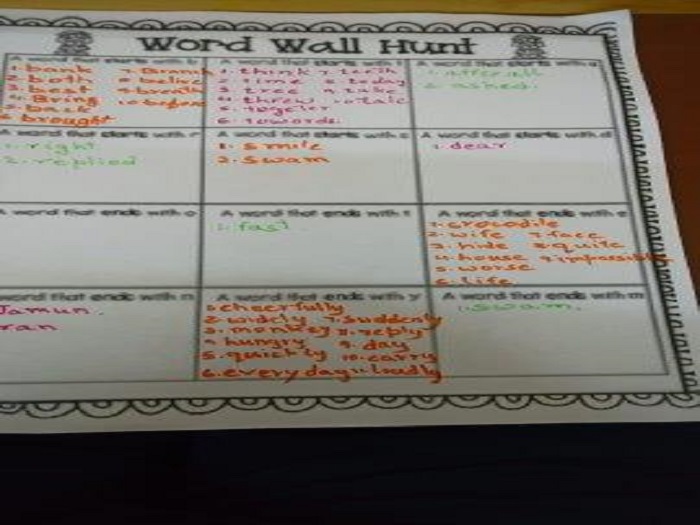 Word Wall Hunt
word that starts with b
1. bank 7. Branch
2. both
3. best 9. breath
4. Bring 10. before
5. back
6. brought
A word that starts with t
1. think 7. teeth
2. time 8. to day
3. tree 9. take
4. threw 10. tale
5. togeter
6. towords
A word that starts with a
1. after all
2. ashed
word that starts with r
1. right
2. replied
A word that starts with s
1. smile
2. swam
A word that starts with d
1. dear
A word that ends with o
A word that ends with t
1. fast
A word that ends with e
1. crocodile
2. wife 7. face
3. hide 8. quite
4. house 9. impossible
5. worse
6. life
word that ends with n
Jamun.
ran
A word that ends with y
1. cheerfully
2. widely 7. suddenly
3. monkey 8. reply
4. hungry 9. day
5. quickly 10. carry
6. everyday 11. loudly
A word that ends with m
1. swam.